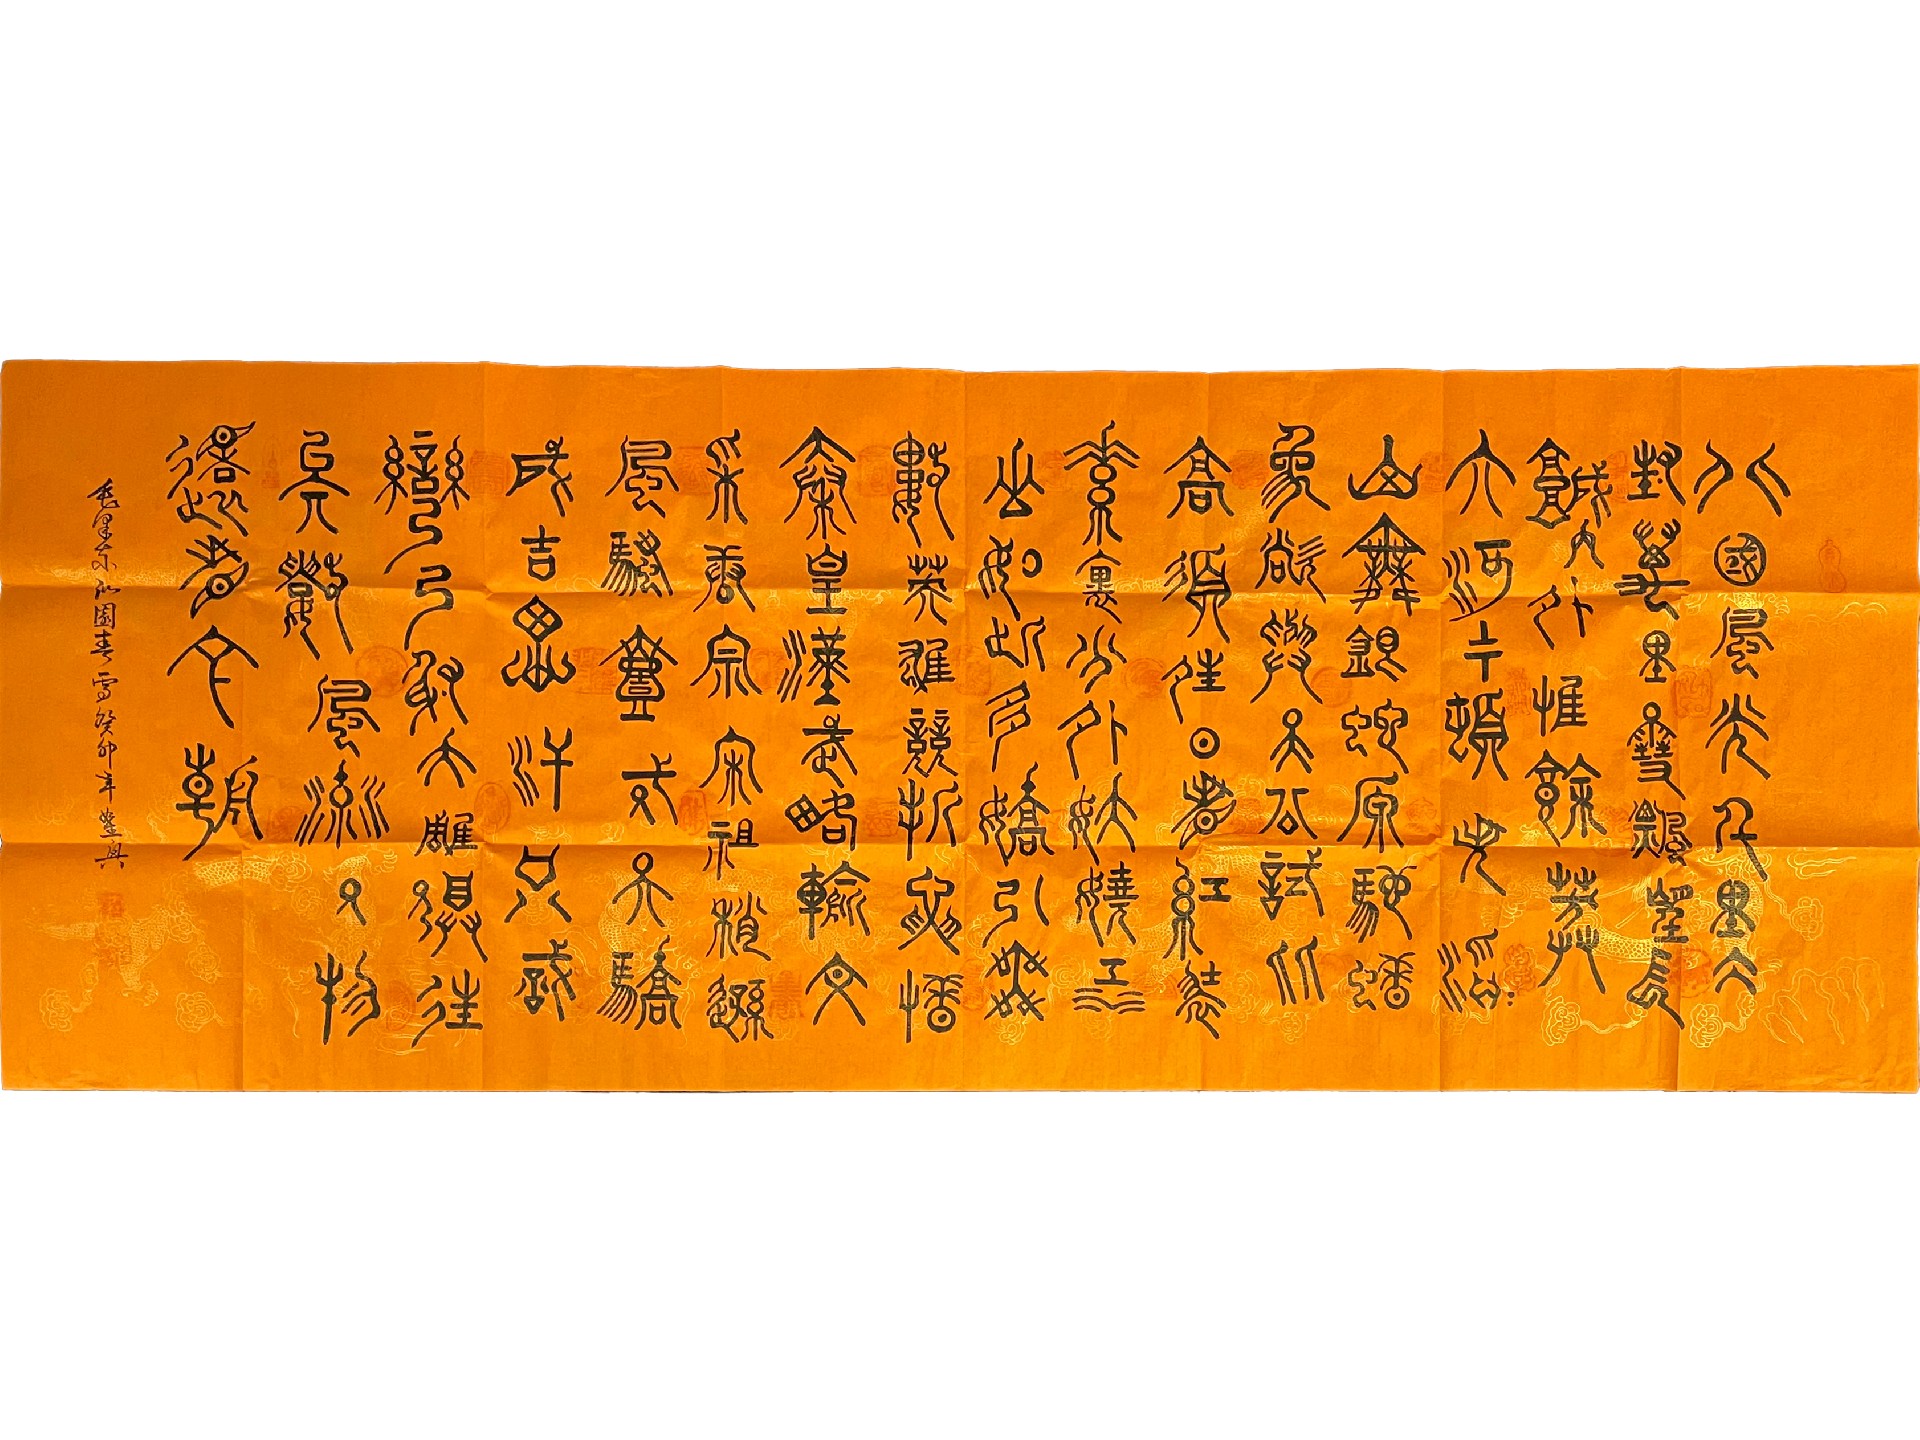 北國風光千里冰
封萬里雪飄望長
城內外惟餘莽莽
大河上下頓失滔滔
山舞銀蛇原馳蠟
象欲與天公試比
高須晴日看紅裝
素裹分外妖嬈江
山如此多嬌引無
數英雄競折腰惜
秦皇漢武略輸文
采唐宗宋祖稍遜
風騷一代天驕
成吉思汗只識
彎弓射大雕俱往
矣數風流人物
還看今朝
毛泽东沁園春雪癸卯年